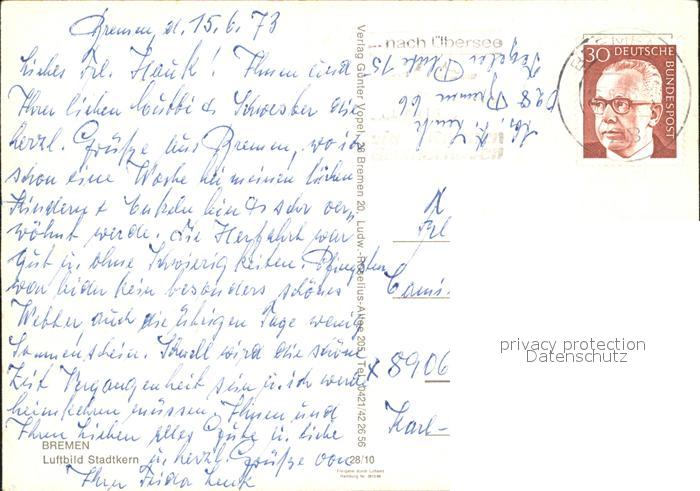 Bremen, d. 15.6.73
Liebes Frl. Hauk! Ihnen und
Ihrer lieben Mutti & Schwester die
herzl. Grüße aus Bremen, wo ich
schon eine Woche bei meinen lieben
Kindern + Enkeln bin & sehr ver-
wöhnt werde. Die Herfahrt war
gut u. ohne Schwierigkeiten. Pfingsten
war leider kein besonders schönes
Wetter, auch die übrigen Tage wenig
Sonnenschein. Schnell wird die schöne
Zeit Vergangenheit sein u. ich werde
heimkehren müssen. Ihnen und
Ihren Lieben alles Gute u. liebe
u. herzl. Grüße von
Ihrer Frida Lenk
BREMEN
Luftbild Stadtkern
28/10
Freigabe durch Luftamt
Verlag Günter Vopel, 28 Bremen 20, Ludw.-Roselius-Allee 205, Tel. 0421/42 26 56
Abs. Lenk
028 Bremen 66
15
nach Übersee
30 DEUTSCHE
BUNDESPOST
Frl
8906
Karl-
privacy protection
Datenschutz